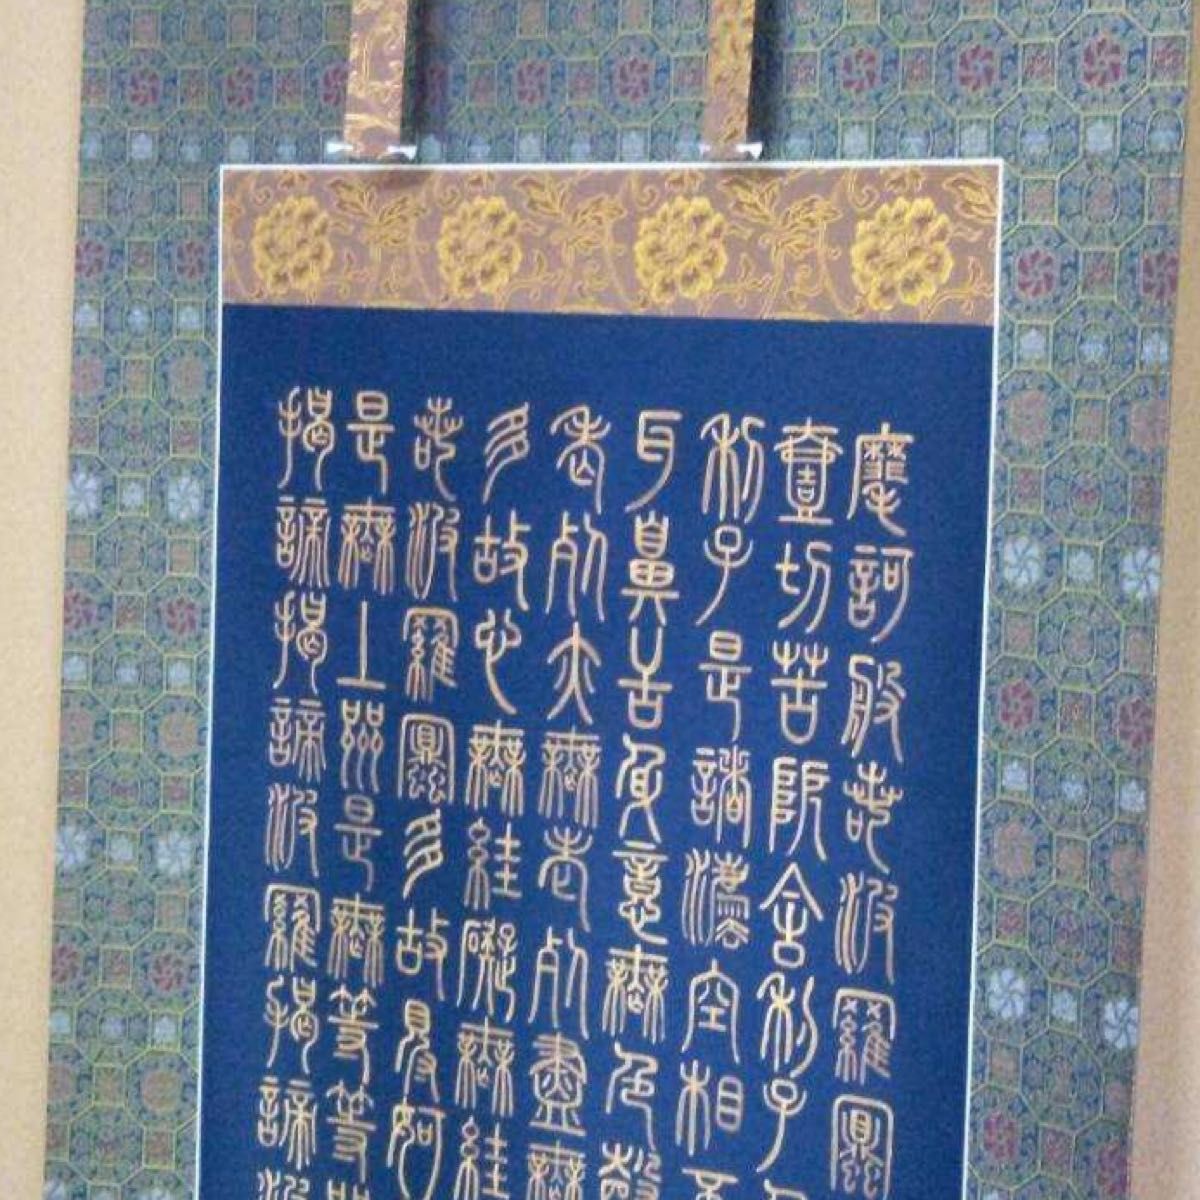 摩訶般若波羅蜜
壹切苦厄舍利子色
利子是諸灋空相不
耳鼻舌身意無色聲
老死亦無老死盡無
多故心無絓礙無絓
若波羅蜜多故得阿
是無上呪是無等等呪
揭諦揭諦波羅揭諦波